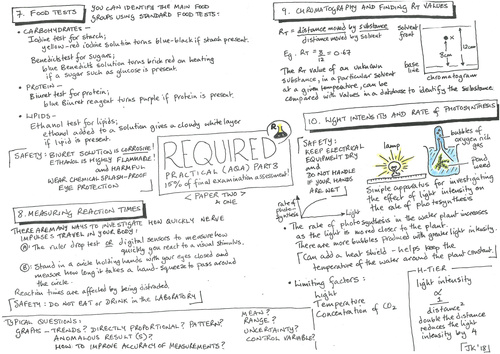 7. FOOD TESTS
YOU CAN IDENTIFY THE MAIN FOOD
GROUPS USING STANDARD FOOD TESTS:
• CARBOHYDRATES -
Iodine test for starch;
yellow-red iodine solution turns blue-black if starch present.
Benedicts test for sugars;
blue Benedicts solution turns brick red on heating
if a sugar such as glucose is present.
• PROTEIN -
Biuret test for protein;
blue Biuret reagent turns purple if protein is present.
• LIPIDS -
Ethanol test for lipids;
ethanol added to solution gives a cloudy white layer
if lipid is present.
SAFETY: BIURET SOLUTION IS CORROSIVE!
ETHANOL IS HIGHLY FLAMMABLE!
AND HARMFUL.
WEAR CHEMICAL SPLASH-PROOF
EYE PROTECTION
R
REQUIRED
PRACTICAL (AQA) PART 3
15% of final examination assessment!
< PAPER TWO >
& ONE
8. MEASURING REACTION TIMES
THERE ARE MANY WAYS TO INVESTIGATE HOW QUICKLY NERVE
IMPULSES TRAVEL IN YOUR BODY:
A The ruler drop test or digital sensors to measure how
quickly you react to a visual stimulus.
B Stand in a circle holding hands with your eyes closed and
measure how long it takes a hand-squeeze to pass around
the circle.
Reaction times are affected by being distracted.
SAFETY: DO NOT EAT or DRINK in the LABORATORY
TYPICAL QUESTIONS:
GRAPHS - TRENDS? DIRECTLY PROPORTIONAL? PATTERN?
ANOMALOUS RESULT(S)?
HOW TO IMPROVE ACCURACY OF MEASUREMENTS?
MEAN?
RANGE?
UNCERTAINTY?
CONTROL VARIABLE?
9. CHROMATOGRAPHY AND FINDING Rf VALUES
Rf = distance moved by substance
distance moved by solvent
Eg. Rf = 8/12 = 0.67
The Rf value of an unknown
substance, in a particular solvent
at a given temperature, can be
compared with values in a database to identify the substance.
solvent front
x
8cm
12cm
base line
chromatogram
10. LIGHT INTENSITY AND RATE OF PHOTOSYNTHESIS
SAFETY:
KEEP ELECTRICAL
EQUIPMENT DRY
and
DO NOT HANDLE
IF YOUR HANDS
ARE WET
lamp
bubbles of
oxygen rich
gas
Pond
weed
Simple apparatus for investigating
the effect of light intensity on
the rate of photosynthesis
rate of
photo-
synthesis
Light
• The rate of photosynthesis in the water plant increases
as the light is moved closer to the plant.
There are more bubbles produced with greater light intensity.
[Can add a heat shield - helps keep the
temperature of the water around the plant constant.]
• Limiting factors:
Light
Temperature
Concentration of CO2
H-TIER
light intensity
∝
1
distance²
double the distance
reduces the light
intensity by 4
JK '18